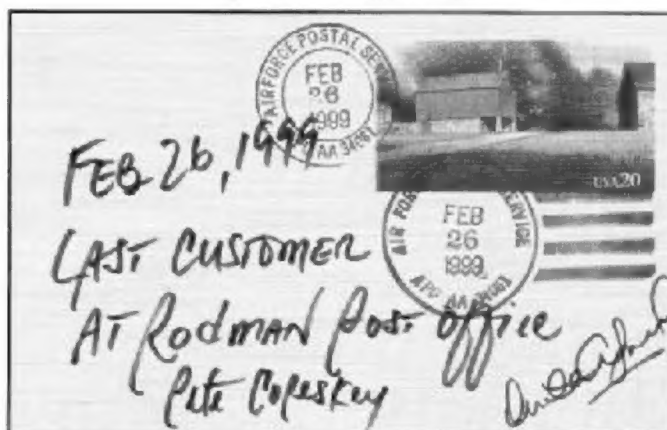 AIRFORCE POSTAL SERVICE
FEB
26
1999
AA 34061
USA20
AIR FORCE POSTAL SERVICE
FEB
26
1999
APO AA 34061
FEB 26, 1999
LAST CUSTOMER
AT RODMAN POST OFFICE
Pete